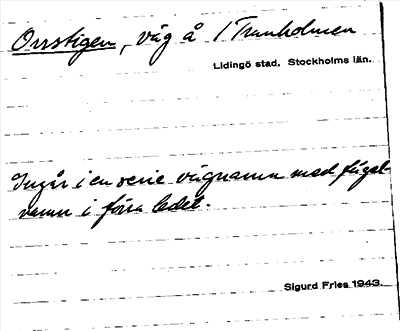 Orrstigen, väg å / Tranholmen
Lidingö stad. Stockholms län.
Ingår i en serie vägnamn med fågel-
namn i förra ledet.
Sigurd Fries 1943.